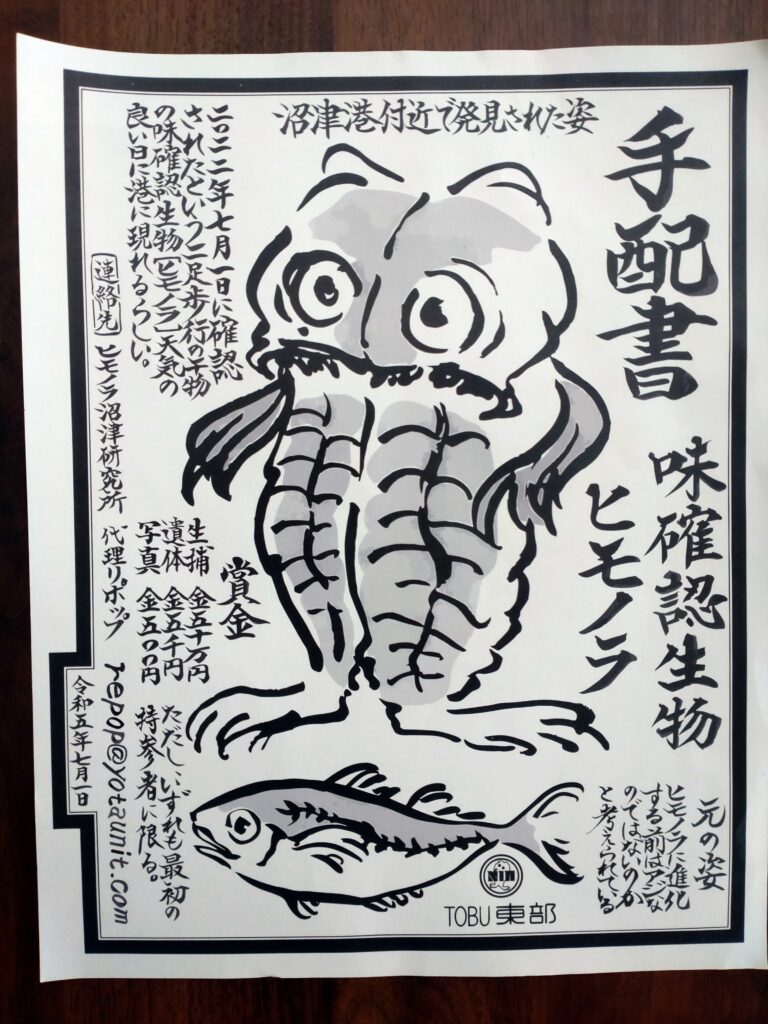 手配書
味確認生物
ヒモノラ
沼津港付近で発見された姿
二〇二二年七月一日に確認
されたという二足歩行の干物
の味確認生物［ヒモノラ］天気の
良い日に港に現れるらしい。
連絡先
ヒモノラ沼津研究所
代理リポップ
repop@yotaunit.com
賞金
生捕 金五十万円
遺体 金五千円
写真 金五〇〇円
ただし、いずれも最初の
持参者に限る。
令和五年七月一日
元の姿
ヒモノラに進化
する前はアジな
のではないのか
と考えられている
NIN
TOBU 東部